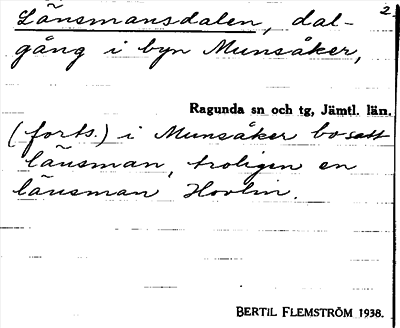 2.
Länsmansdalen, dal-
gång i byn Munsåker,
Ragunda sn och tg, Jämtl. län.
(forts.) i Munsåker bosatt
länsman, troligen en
länsman Hovlin.
BERTIL FLEMSTRÖM 1938.